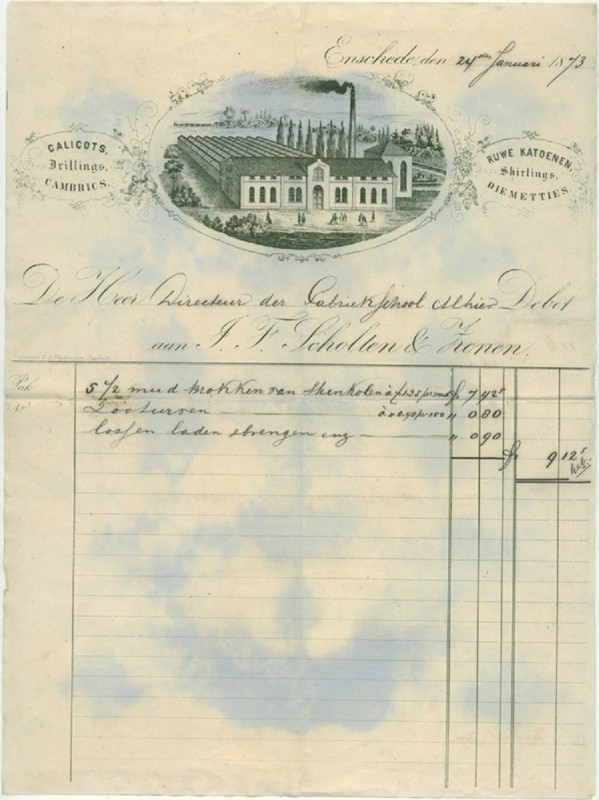 Enschede, den 24sten Januari 1873
CALICOTS.
Drillings.
CAMBRICS.
RUWE KATOENEN.
Shirtings.
DIEMETTIES.
De Heer Directeur der Fabriekschool Alhier Debet
aan J. F. Scholten & Zonen.
Pak
Nr
5 1/2 mud brokken van Steenkolen à f 1.35 pr mud f 7,42⁵
200 turven à 0.40 pr 100 " 0 80
lossen laden brengen enz " 0 90
f 9 12⁵